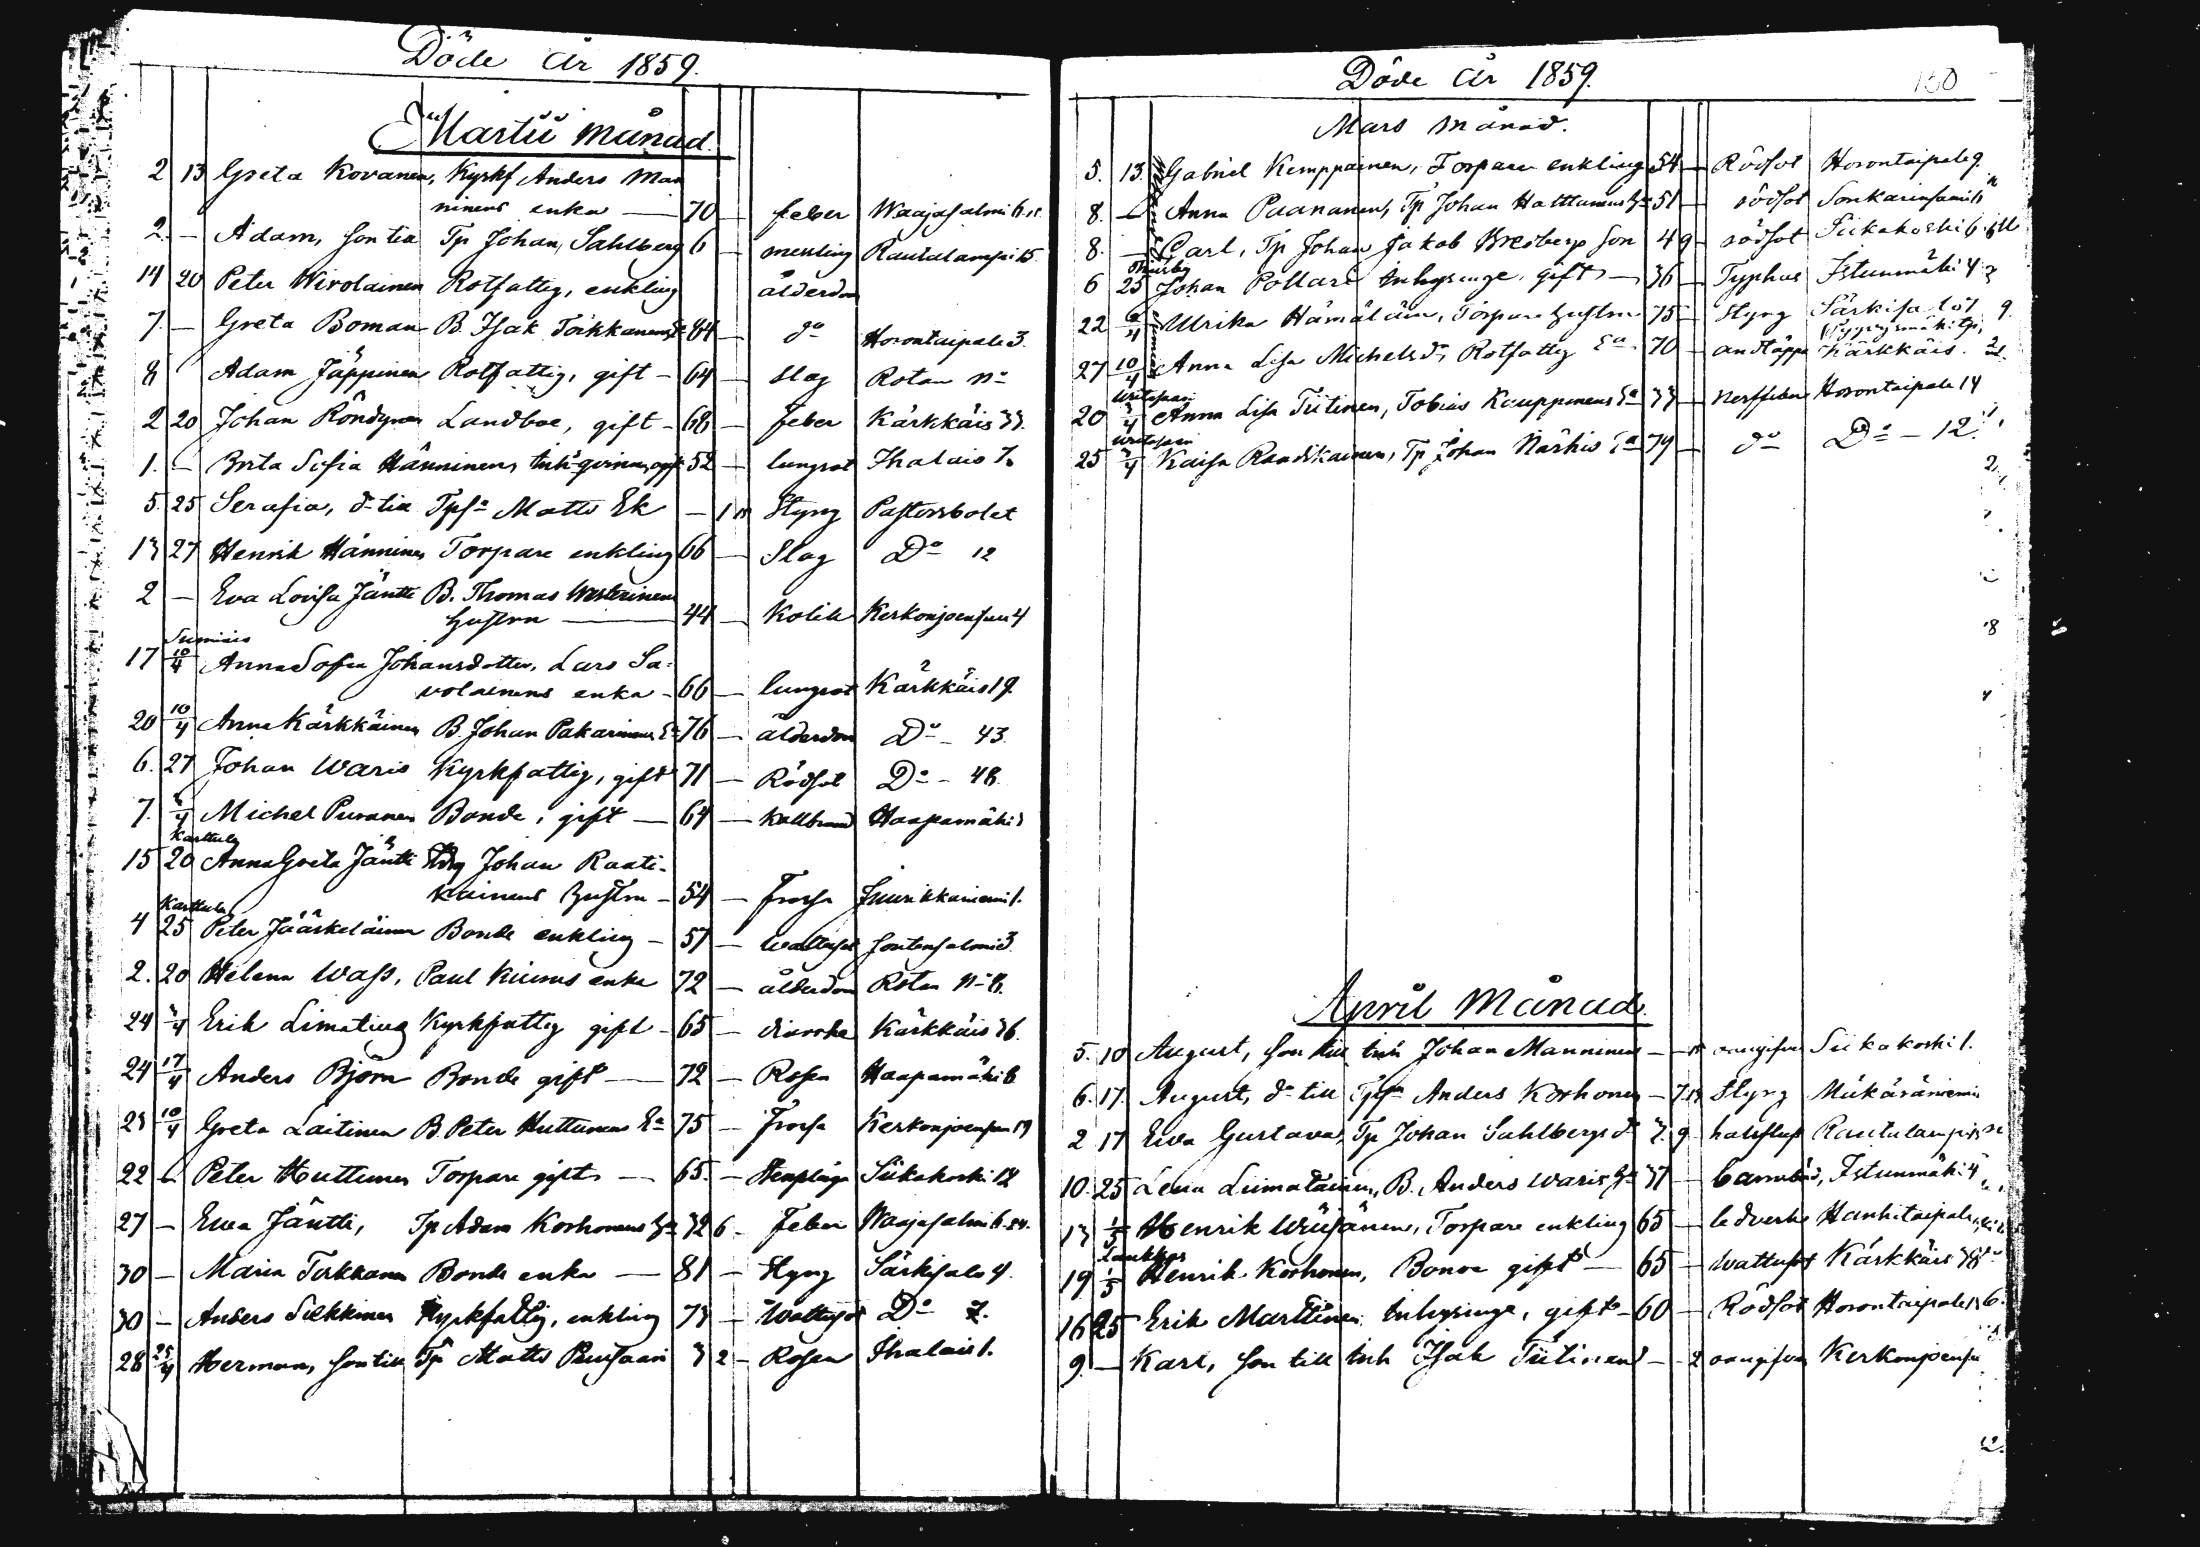 Döde år 1859.
Martii månad.
2 13 Greta Kovanen, Kyrkf Anders Man
ninens enka — 70 — feber Waajasalmi 6
2. — Adam, son till Tp Johan Sahlberg 6 — messling Rautalampi 15
14 20 Peter Wirolainen Rotfattig, enkling ålderdom
7. — Greta Boman B. Isak Toikkanens 84 — do Horontaipale 3.
8 Adam Jäppinen Rotfattig, gift — 64 — Slag Rotan
2 20 Johan Röndynen Landboe, gift — 68 — feber Kärkkäis 33.
1. — Brita Sofia Hänninen, 52 — lungsot Ihalais 7.
5. 25 Serafia, d till Matts Ek — 1 Styng Pastorsbolet
13 27 Henrik Hänninen Torpare enkling 66 — Slag Do 12
2 — Eva Lovisa Jäntti B. Thomas Westerinens
hustru — 44 — Kolik Kerkonjoensuu 4
Sumiais
17 10/4 Anna Sofia Johansdotter, Lars Sa-
volainens enka — 66 — lungsot Kärkkäis 19.
20 10/4 Anna Kärkkäinen B. Johan Pakarinens Ea 76 — ålderdom Do — 43.
6. 27 Johan Waris Kyrkfattig, gift 71 — Rödsot Do — 48.
7. Michel Puranen Bonde, gift — 64 — kallbrand Haapamäki
Karttula
15 20 Anna Greta Jäntti Johan Raati-
kainens hustru — 54 — Frossa 1.
Karttula
4 25 Peter Jääskeläinen Bonde enkling — 57 — wattusot 3.
2. 20 Helena Wass, Paul Kiurus enka 72 — ålderdom Rotan
24 Erik Limating Kyrkfattig gift — 65 — diarrhe Kärkkäis 36.
24 17/4 Anders Björn Bonde gift — 72 — Rosen Haapamäki 6
23 10/4 Greta Laitinen B. Peter Huttunens Ea 75 — Frossa Kerkonjoensuu 19
22 Peter Huttunen Torpare gift — 65. — Siikakoski 12
27 — Ewa Jäntti, Tp Adam Korhonens 32 6 — feber Waajasalmi 6
30 — Maria Tarkkanen Bonde enka — 81 — Styng Särkisalo 4.
30 — Anders Siekkinen Kyrkfattig, enkling 73 — Wattusot Do 7.
28 25/4 Herman, son till Tp Matts Puusaari 3 2 — Rosen Ihalais 1.
Döde år 1859.
150
Mars månad.
5. 13. Gabriel Kemppainen, Torpare enkling 54 — Rödsot Horontaipale 9.
8. — Anna Paananen, Tp Johan Halttunens 51 — rödsot Sonkarinsaari
8. — Carl, Tp Johan Jakob Bresbergs son 4 9 — rödsot Siikakoski 6
6 25 Johan Pollari Inhysinge, gift — 36 — Typhus Istunmäki 4
22 Ulrika Hämäläin, Torpare hustru 75 — Styng Särkisalo 9.
27 10/4 Anna Lisa Michelsdr, Rotfattig Ea 70 — andtäppa Kärkkäis.
20 Anna Lisa Tiitinen, Tobias Kauppinens Ea 33 — nerffeber Horontaipale 14
25 Kaisa Raudikainen, Tp Johan Närhis Ea 79 — do Do — 12.
April Månad.
5. 10 August, son till Inh Johan Manninens — 15 oangifven Siikakoski 1.
6. 17. August, d till Anders Korhonen — 7 Styng Mükäräniemi
2 17 Ewa Gustava, Tp Johan Sahlbergs d 7. 9 Rautalampi
10. 25 Lena Liimatainen, B. Anders Waris 37 — barnsbörd, Istunmäki 4
13 1/5 Henrik Wüsänen, Torpare enkling 65 — ledverk Hanhitaipale
19 1/5 Henrik Korhonen, Bonde gift — 65 — Wattusot Kärkkäis 38
16 25 Erik Marttinen Inhysinge, gift — 60 — Rödsot Horontaipale
9. — Karl, son till Inh Isak Tiitinens — 2 oangifven Kerkonjoensu